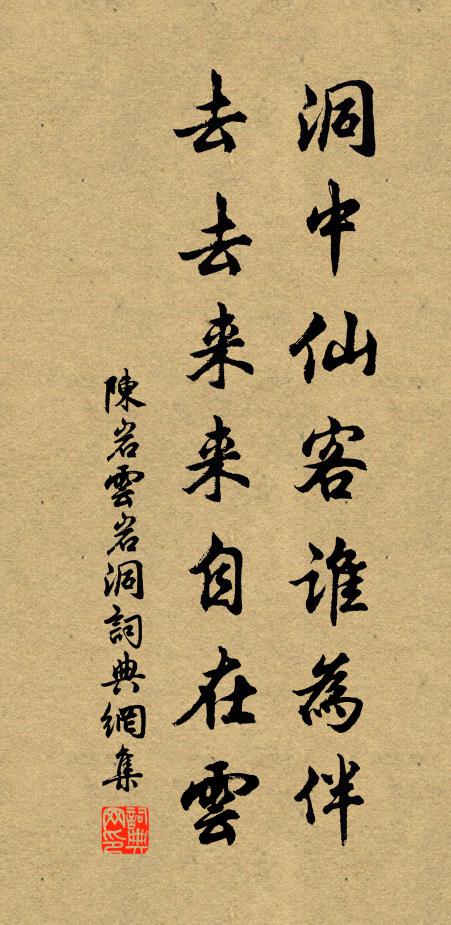 洞中仙客誰為伴
去去来来自在雲
陳岩雲岩洞詞典網集
詞典網印